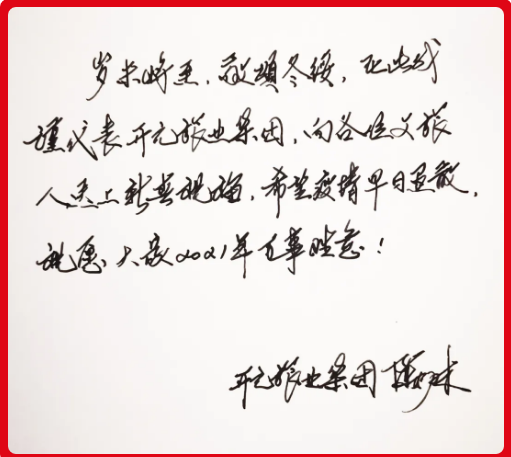 岁末将至，敬颂冬绥，在此我
谨代表开元旅业集团，向各位文旅
人送上新春祝福，希望疫情早日消散，
祝愿大家2021年万事胜意！
开元旅业集团 陈妙林